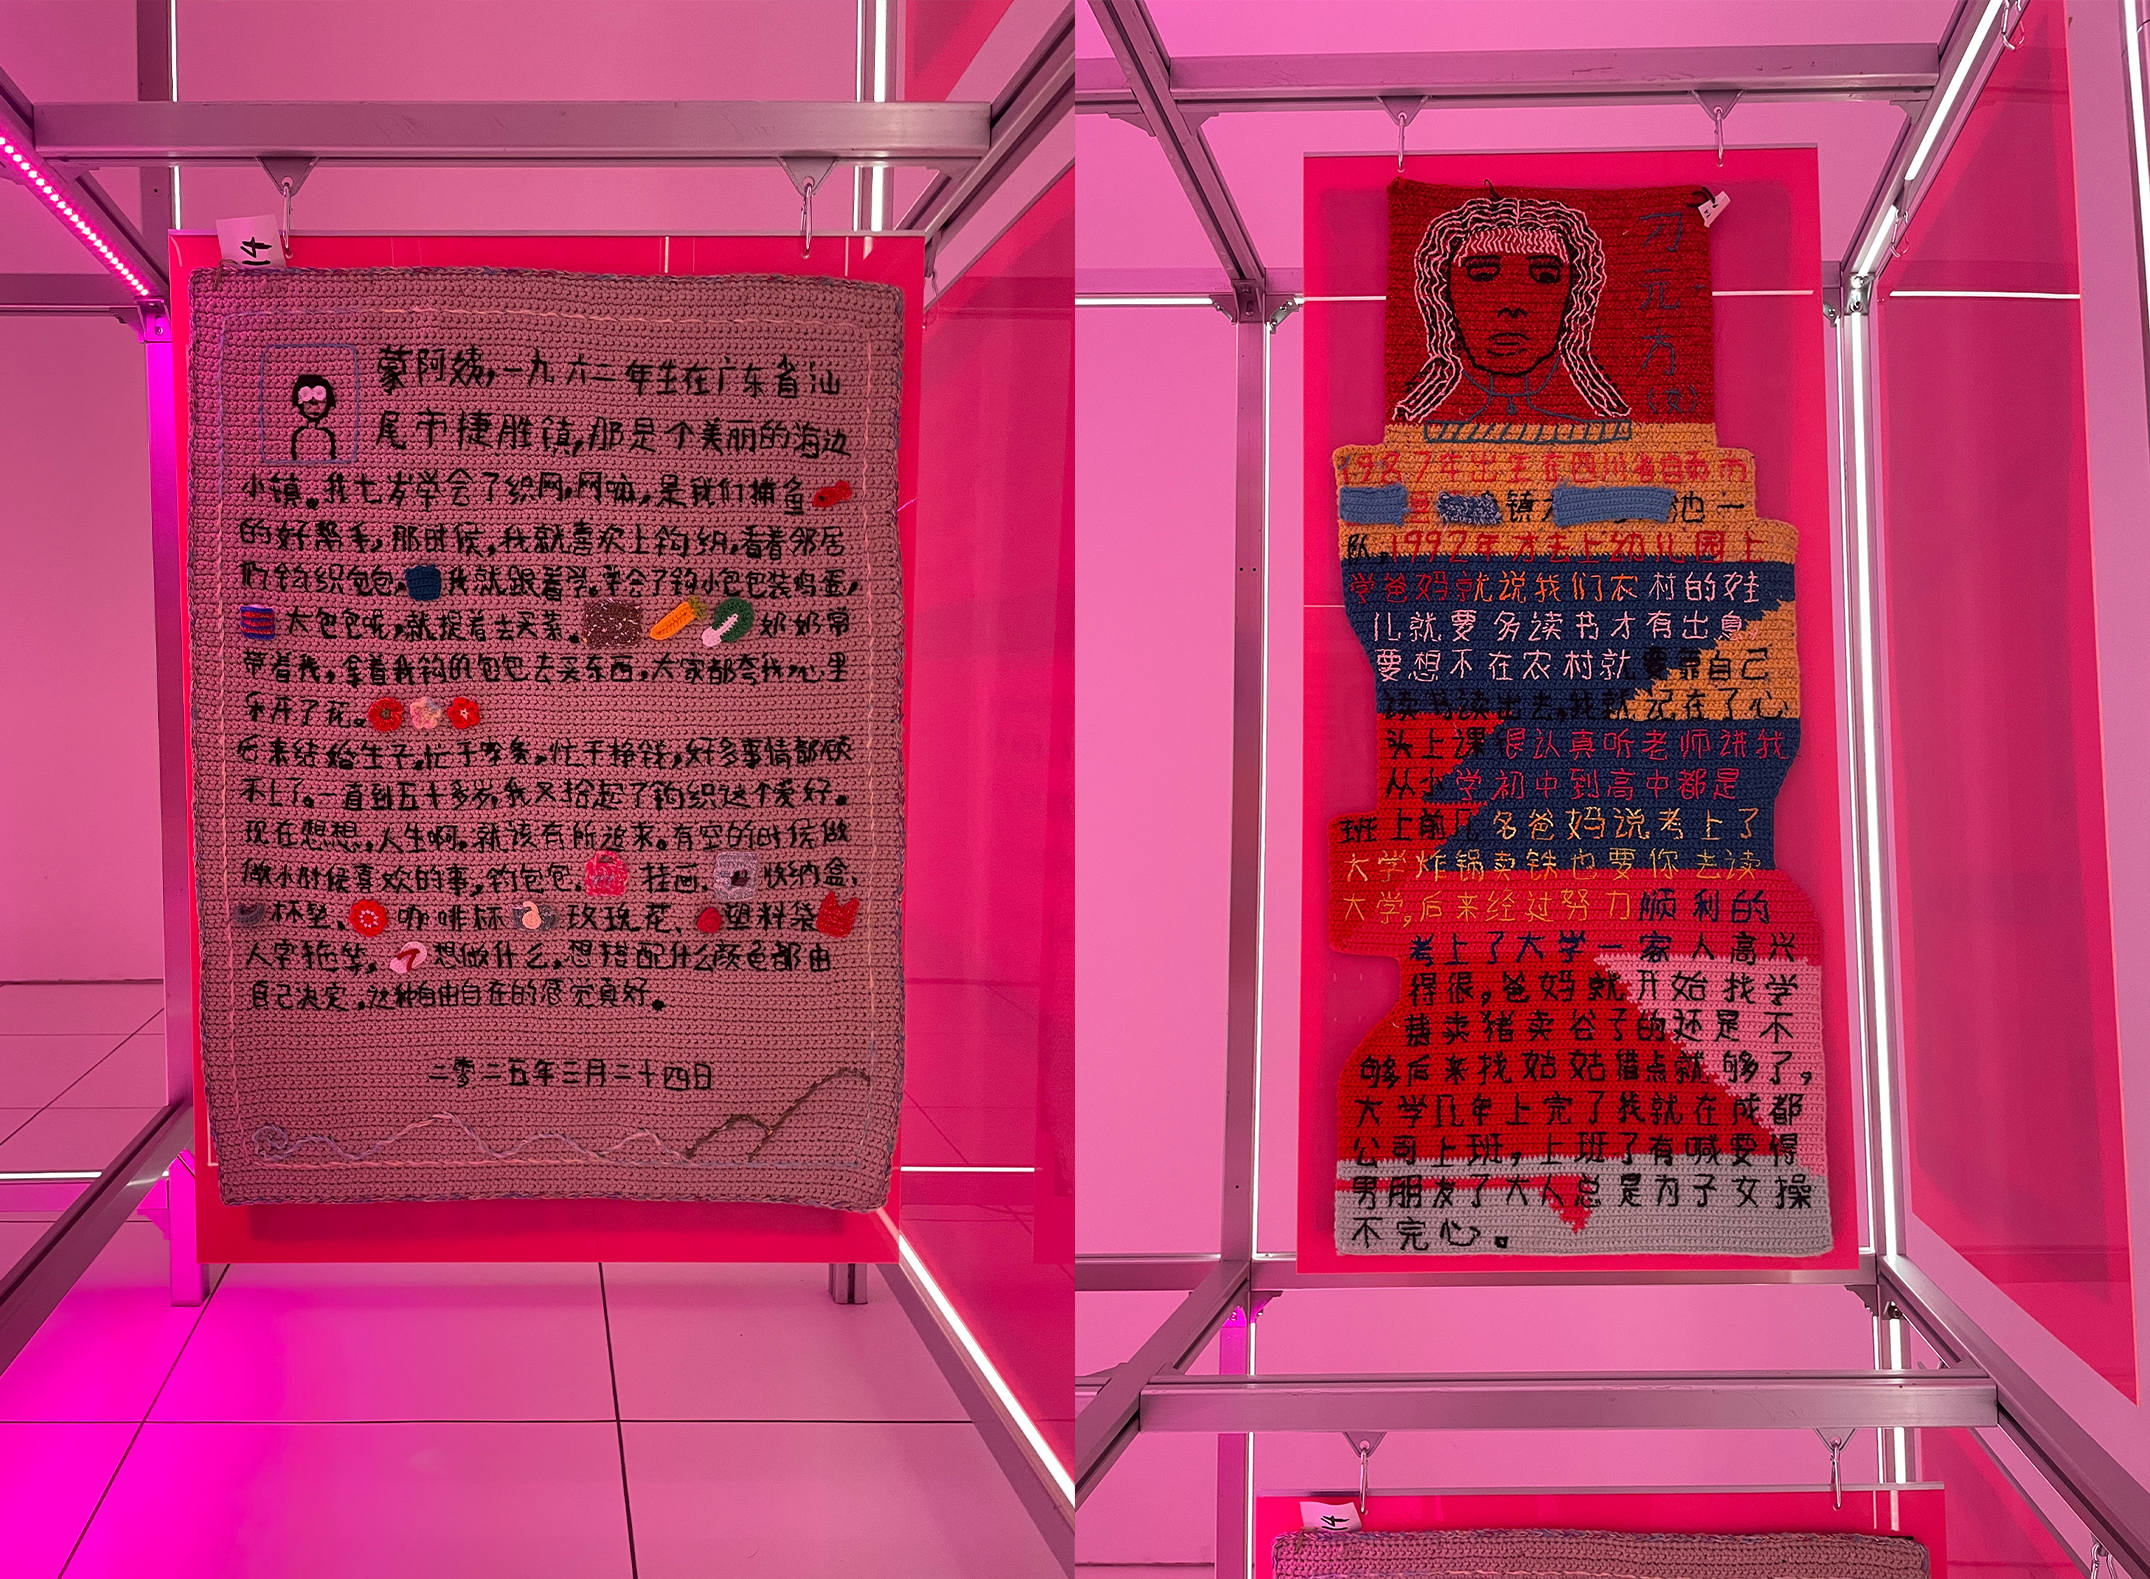 14
蒙阿姨,一九六二年生在广东省汕
尾市捷胜镇,那是个美丽的海边
小镇。我七岁学会了织网,网嘛,是我们捕鱼
的好帮手,那时候,我就喜欢上钩织,看着邻居
们钩织包包,我就跟着学。学会了钩小包包装鸡蛋,
大包包呢,就提着去买菜。奶奶常
带着我,拿着我钩的包包去买东西,大家都夸我,心里
乐开了花。
后来结婚生子,忙于家务,忙于挣钱,好多事情都顾
不上了。一直到五十多岁,我又拾起了钩织这个爱好。
现在想想,人生啊,就该有所追求。有空的时候做
做小时候喜欢的事,钩包包、挂画、收纳盒、
杯垫、咖啡杯、玫瑰花、塑料袋
人字拖等,想做什么,想搭配什么颜色都由
自己决定,这种自由自在的感觉真好。
二零二五年三月二十四日
刁元方
(女)
1987年出生在四川省自贡市
镇 池一
队,1992年才去上幼儿园上
学爸妈就说我们农村的娃
儿就要多读书才有出息,
要想不在农村就要靠自己
读书读出去,我就记在了心
头上课很认真听老师讲我
从小学初中到高中都是
班上前几名爸妈说考上了
大学炸锅卖铁也要你去读
大学,后来经过努力顺利的
考上了大学一家人高兴
得很,爸妈就开始找学
费卖猪卖谷了的还是不
够后来找姑姑借点就够了,
大学几年上完了我就在成都
公司上班,上班了有喊要得
男朋友了大人总是为子女操
不完心。
14